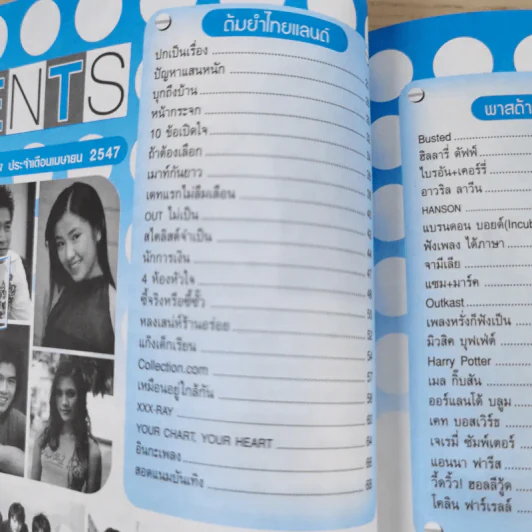 ENTS
ประจำเดือนเมษายน 2547
ต้มยำไทยแลนด์
ปกเป็นเรื่อง
ปัญหาแสนหนัก
บุกถึงบ้าน
หน้ากระจก
10 ข้อเปิดใจ
ถ้าต้องเลือก
เมาท์กันยาว
เดทแรกไม่ลืมเลือน
OUT ไม่เป็น
สไตลิสต์จำเป็น
นักการเงิน
4 ห้องหัวใจ
ซี้จริงหรือซี้ซั้ว
หลงเสน่ห์ร้านอร่อย
แก๊งเด็กเรียน
Collection.com
เหมือนอยู่ใกล้กัน
XXX-RAY
YOUR CHART, YOUR HEART
อินกะเพลง
สอดแนมบันเทิง
พาสต้า
Busted
ฮิลลารี่ ดัฟฟ์
ไบรอัน+เคอร์รี่
อาวริล ลาวีน
HANSON
แบรนดอน บอยด์(Incub
ฟังเพลง ได้ภาษา
จามีเลีย
แซม+มาร์ค
Outkast
เพลงหรั่งก็ฟังเป็น
มิวสิค บุฟเฟ่ต์
Harry Potter
เมล กิ๊บสัน
ออร์แลนโด้ บลูม
เคท บอสเวิร์ธ
เจเรมี่ ซัมพ์เตอร์
แอนนา ฟาริส
วี้ดวิ้ว! ฮอลลีวู้ด
โคลิน ฟาร์เรลล์